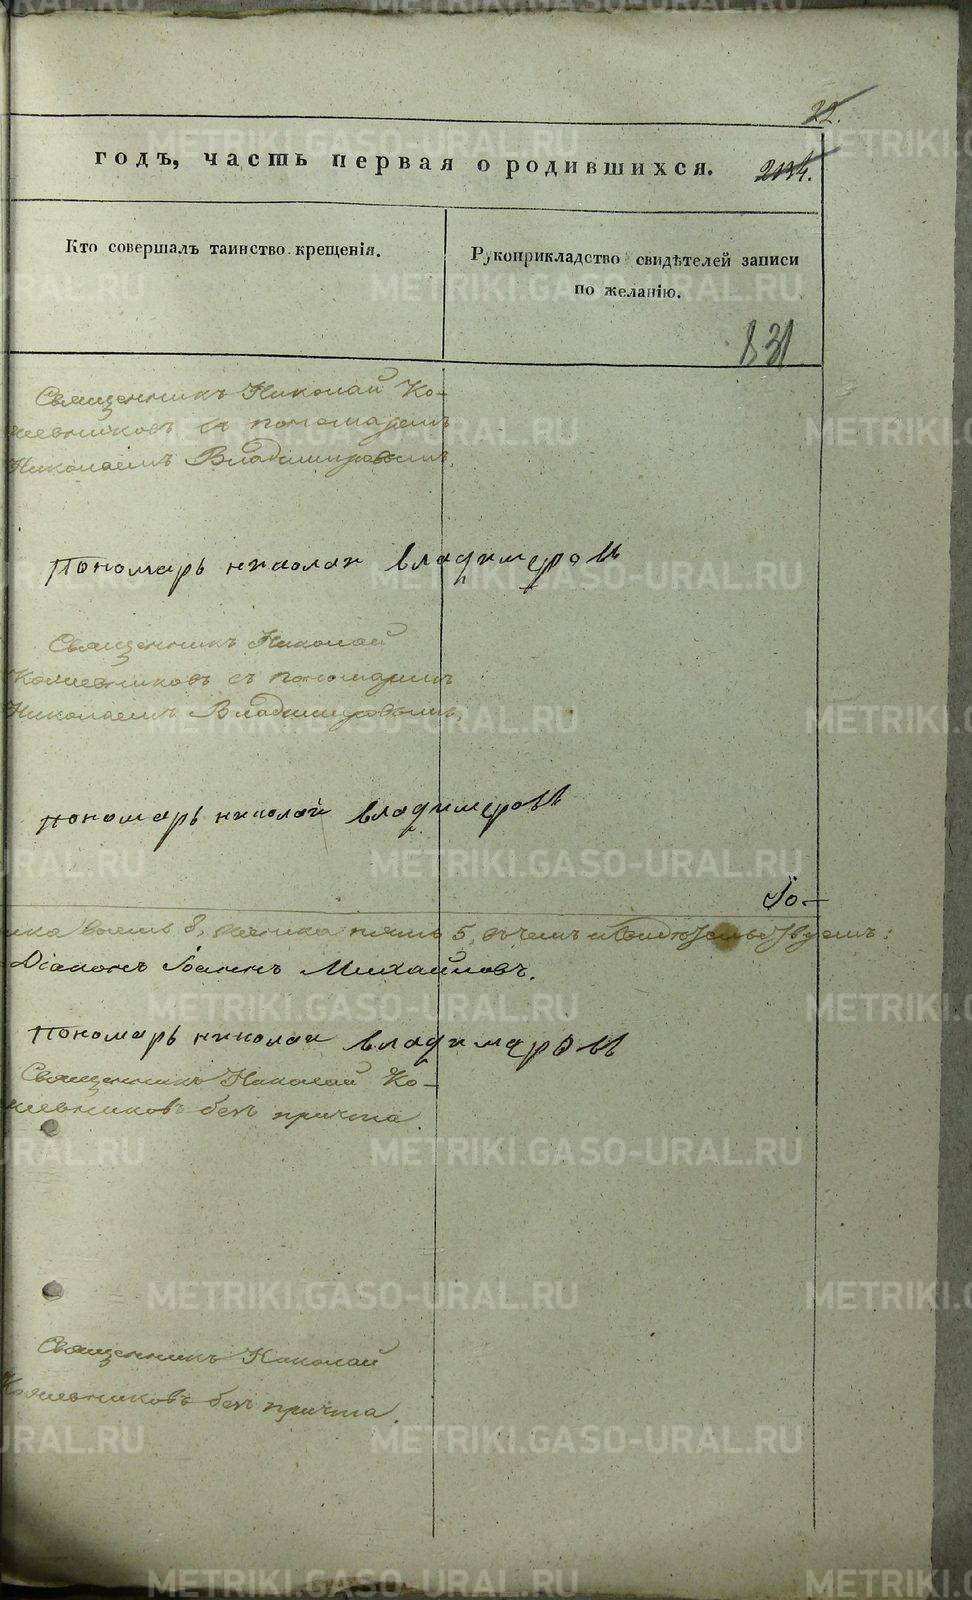 22.
годъ, часть первая о родившихся.
Кто совершалъ таинство крещенія.
Рукоприкладство свидѣтелей записи
по желанію.
831
Священникъ Николай Ко-
жевниковъ съ пономаремъ
Николаемъ Владимировымъ.
Пономарь николаи владимеровъ
Священникъ Николай
Кожевниковъ съ пономаремъ
Николаемъ Владимировымъ.
пономарь николай владимеровъ
Іо-
восемь 8, женска пять 5, въ чемъ и свидѣтельствуемъ:
Діаконъ Іоаннъ Михайловъ.
пономарь николаи владимеровъ
Священникъ Николай Ко-
жевниковъ безъ причта.
Священникъ Николай
Кожевниковъ безъ причта.
METRIKI.GASO-URAL.RU